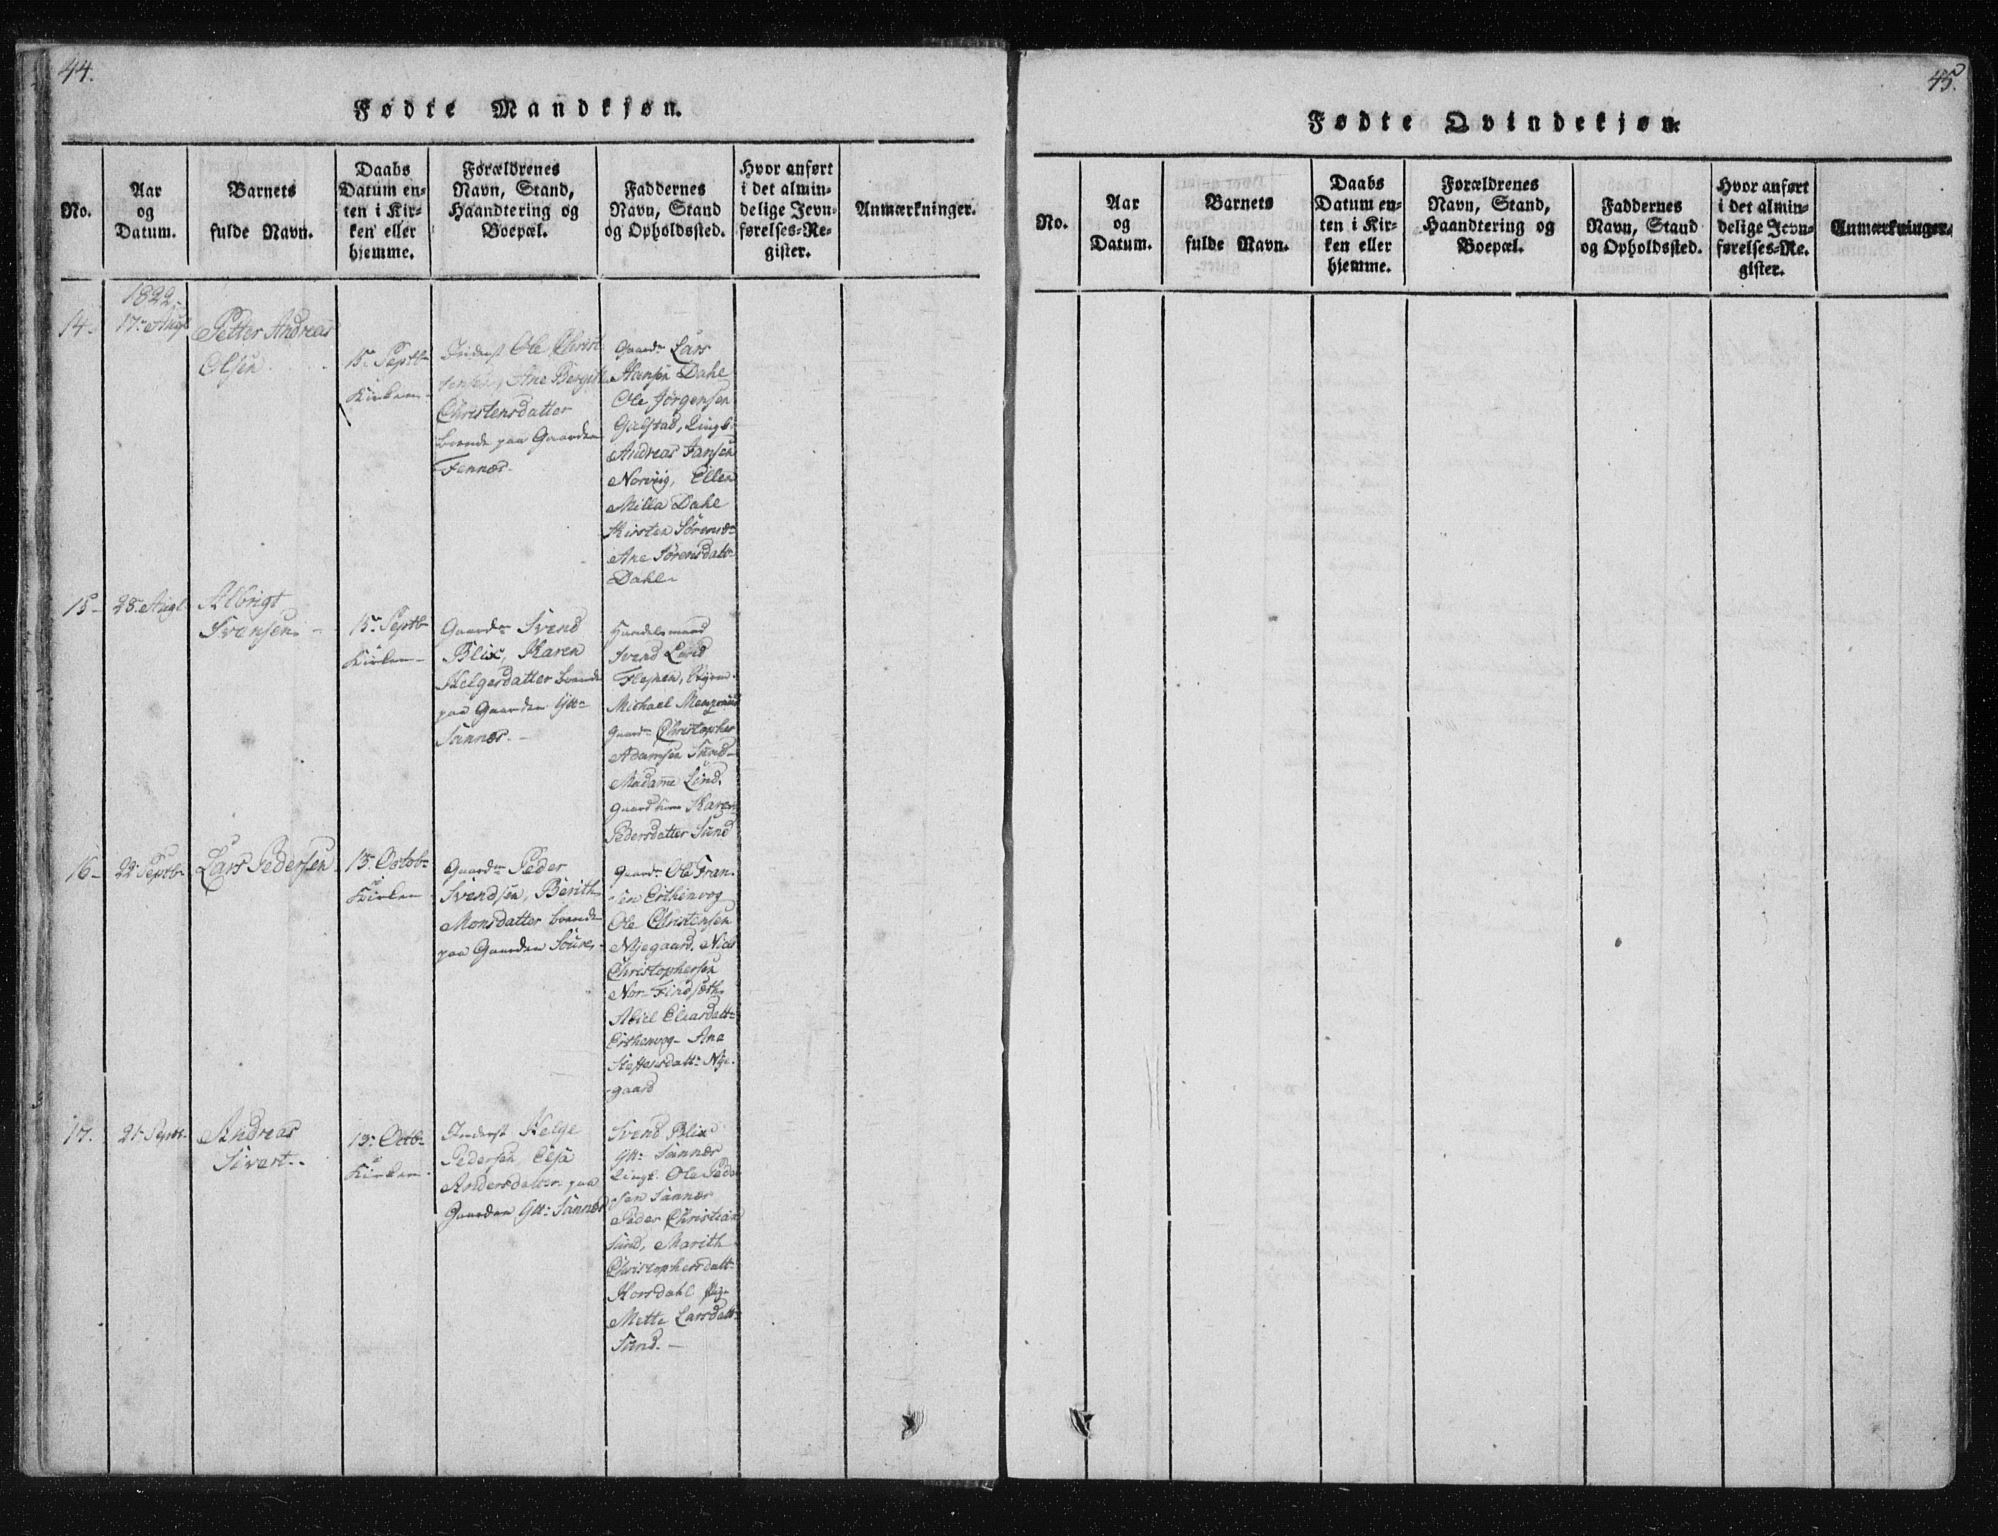 44.
Fødte Mandkjøn.
No.
Aar
og
Datum.
Barnets
fulde Navn.
Daabs
Datum en-
ten i Kir-
ken eller
hjemme.
Forældrenes
Navn, Stand,
Haandtering og
Boepæl.
Faddernes
Navn, Stand
og Opholdssted.
Hvor anført
i det almin-
delige Jevn-
førelses-Re-
gister.
Anmærkninger.
1822.
14.
17. Augt
Petter Andreas
Olsen.
15. Septb
Kirken
Inderst Ole Christ
tensen, Ane Bergitt
Christensdatter
boende paa Gaarden
Fennes.
Gaardm Lars
Hansen Dahl
Ole Jørgensen
Gulstad, Lingt
Andreas Jansen
Norviig, Ellen
Milla Dahl
Kirsten Sørensd
Ane Sørensdatt
Dahl
15
28. Augt
Albrigt
Svensen
15. Septb
Kirken
Gaardm Svend
Blix, Karen
Helgesdatter boende
paa Gaarden Ytt
Sannæs.
Handelsmand
Svend Lind
Michael
Gaardm Christopher
Adamsen Sund
Madame Lind,
Karen
Pedersdatter Sund
16
22. Septb
Lars Pedersen
13. Octob
Kirken
Gaardm Peder
Svendsen, Berith
Monsdatter boende
paa Gaarden
Gaardm Ole Fran-
sen
Ole Christensen
Nyegaard, Niels
Christophersen
Nor Findsæth
Abiel
Ane
Steffensdatt Nye-
gaard
17.
21. Septb.
Andreas
Sivert
13. Octb
Kirken
Inderst Helge
Pedersen, Elsa
Andersdatter paa
Gaarden Ytt Sannæs
Svend Blix
Ytt Sannæs
Lingt. Ole Peder
sen Sannæs
Peder Christian
Sund, Marith
Christophersdatt
Korsdahl Pige
Mette Larsdatt
Sund.
45.
Fødte Qvindekjøn.
No.
Aar
og
Datum.
Barnets
fulde Navn.
Daabs
Datum en-
ten i Kir-
ken eller
hjemme.
Forældrenes
Navn, Stand,
Haandtering og
Boepæl.
Faddernes
Navn, Stand
og Opholdssted.
Hvor anført
i det almin-
delige Jevn-
førelses-Re-
gister.
Anmærkninger.